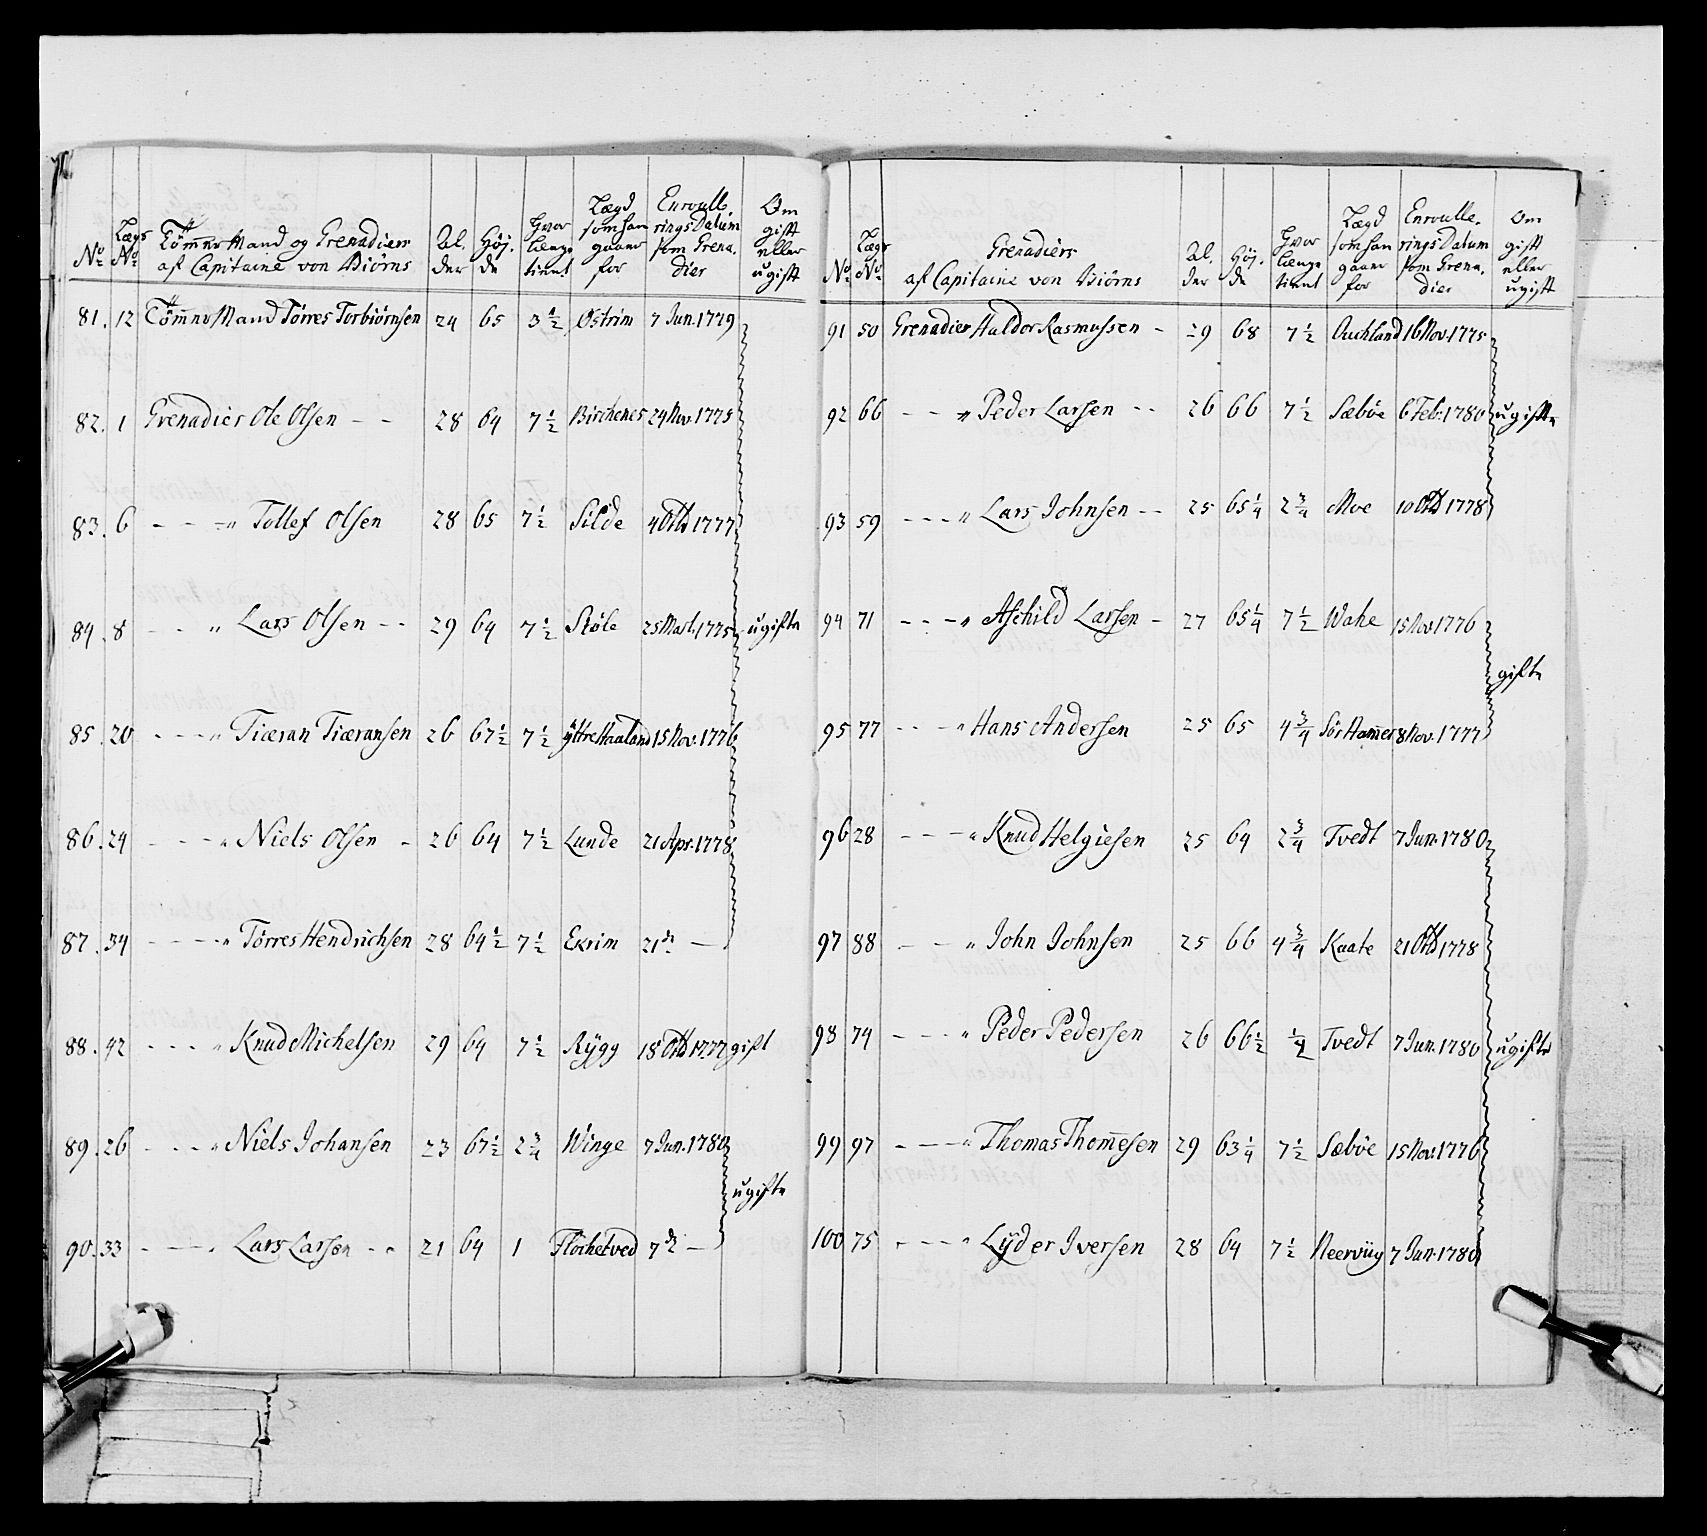 No Lægs No Tömmer Mand og Grenadiers af Capitaine von Biörns Alder Höjde Hvor længe tient Lægd som han gaaer for Enroullerings Datum som Grenadier Om gift eller ugift
81. 12 Tömmer Mand Törres Torbiörnsen 24 65 3 1/2 Østrim 7 Jun. 1779
82. 1 Grenadier Ole Olsen - - 28 64 7 1/2 Birchenes 24 Nov. 1775
83. 6 - - - " Tollef Olsen 28 65 7 1/2 Silde 4 Octb 1777
84. 8 - - " Lars Olsen - - 29 64 7 1/2 Stöle 25 Mart. 1775 ugifte
85. 20 - - - " Tiæran Tiæransen 26 67 1/2 7 1/2 ÿttre Haaland 15 Nov. 1776
86. 24 - - - " Niels Olsen - 26 64 7 1/2 Lunde 21 Apr. 1778
87. 34 - - - - " Törres Hendrichsen 28 64 1/2 7 1/2 Ekrim 21 de -
88. 42 - - - " Knud Michelsen 29 64 7 1/2 Rÿgg 18 Octb 1777 gift
89. 26 - - - " Niels Johansen 23 67 1/2 2 3/4 Winge 7 Jun. 1780
ugifte
90. 33 - - - " Lars Larsen - - 21 64 1 Flöchetved 7 de -
No Lægs No Grenadiers af Capitaine von Biörns Alder Höjde Hvor længe tient Lægd som han gaaer for Enroullerings Datum som Grenadier Om gift eller ugift
91 50 Grenadier Haldor Rasmussen - 29 68 7 1/2 Auchland 16 Nov. 1775
92 66 - - " Peder Larsen - - 26 66 7 1/2 Sæböe 6 Feb. 1780 ugifte
93 59 - - - " Lars Johnsen - - 25 65 1/4 2 3/4 Moe 10 Octb 1778
94 71 - - - " Aschild Larsen - 27 65 1/4 7 1/2 Wahe 15 Nov 1776
gifte
95 77 - - - " Hans Andersen 25 65 4 3/4 Sör Hammer 8 Nov. 1777
96 28 - - - " Knud Helgiesen 25 64 2 3/4 Tvedt 7 Jun. 1780
97 88 - - " John Johnsen 25 66 4 3/4 Kaate 21 Octb 1778
98 74 - - - " Peder Pedersen 26 66 1/2 1/2 Tvedt 7 Jun. 1780 ugifte
99 97 - - - " Thomas Thommesen 29 63 1/4 7 1/2 Sæböe 15 Nov: 1776
100 75 - - - " Lÿder Iversen 28 64 7 1/2 Neervüg 7 Jun. 1780